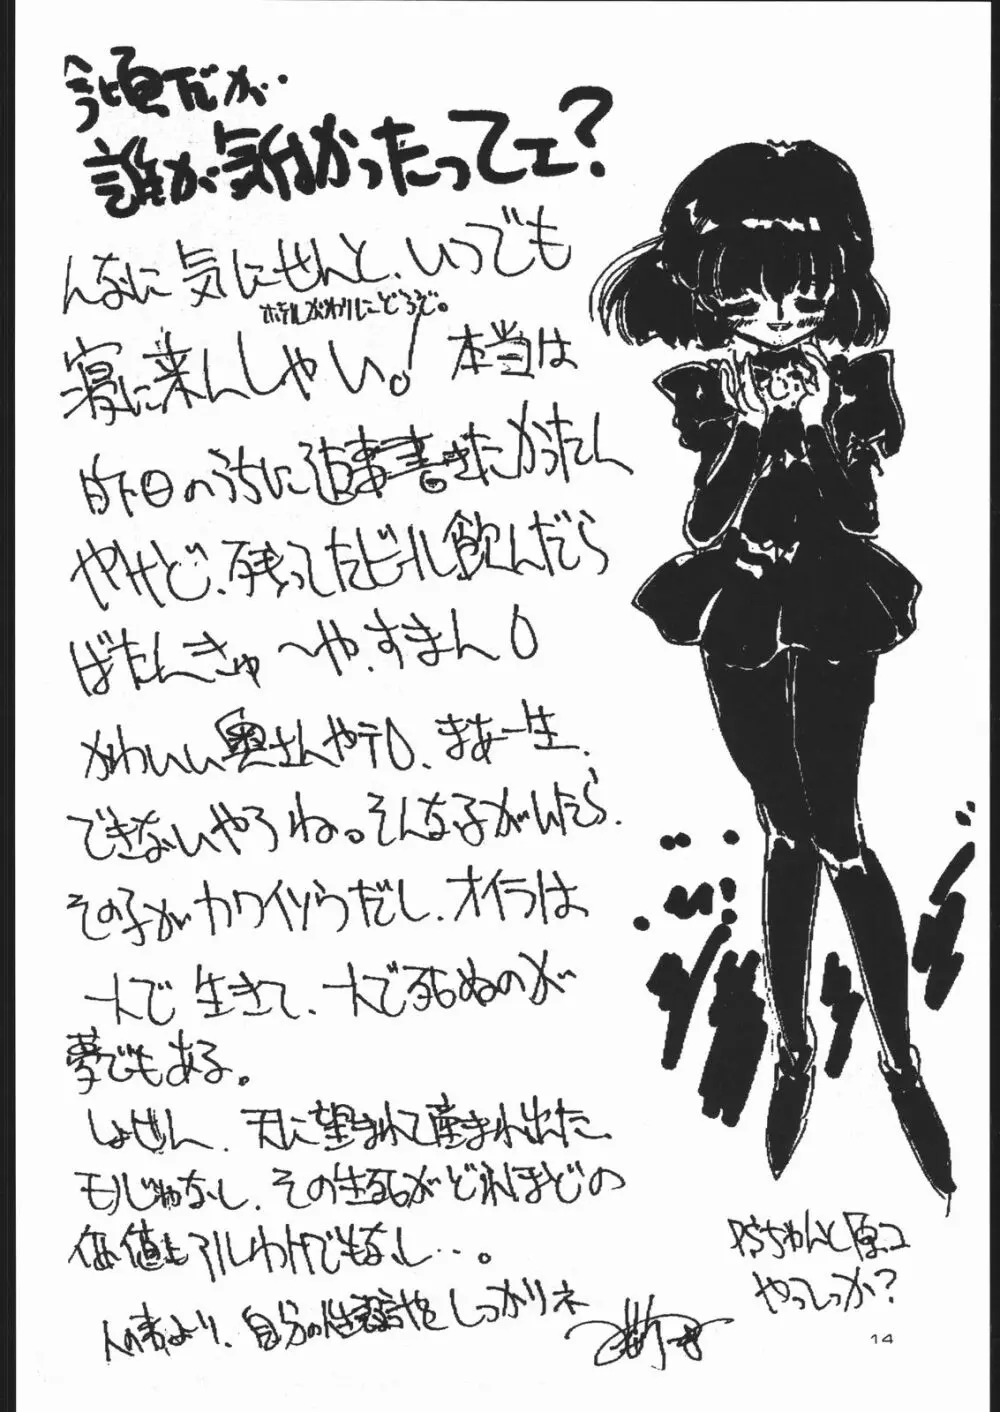 今頃だが…
誰が気はかったってェ?
んなに気にせんと、いつでも
ホテルがわりにどうぞ。
寝に来んしゃい!。本当は
昨日のうちに返事書きたかったん
やけど、残ってたビール飲んだら
ばたんきゅ〜や、すまん
かわいい奥さんや子、まあ一生、
できないやろね。そんな子がいたら、
その子がカワイソウだし、オイラは
一人で生きて、一人で死ぬのが
夢でもある。
しょせん、天に望まれて産まれ出た、
モノじゃなし、その生死がどれほどの
価値もアルわけでもなし…。
人の事より、自分の生活設計をしっかりネ
PSちゃんと原コ
やってっか?
14